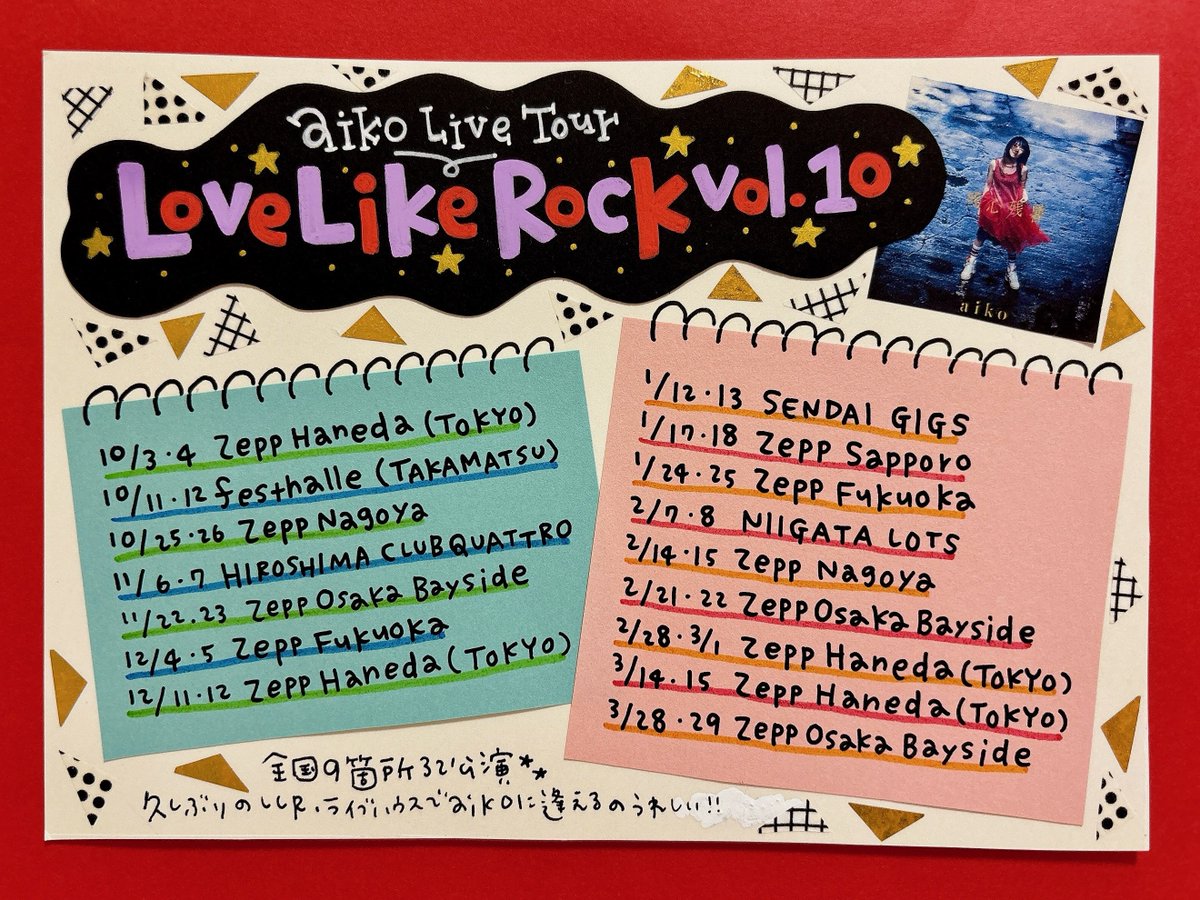 aiko Live Tour
Love Like Rock vol.10
aiko
10/3・4 Zepp Haneda (TOKYO)
10/11・12 festhalle (TAKAMATSU)
10/25・26 Zepp Nagoya
11/6・7 HIROSHIMA CLUB QUATTRO
11/22.23 Zepp Osaka Bayside
12/4・5 Zepp Fukuoka
12/11・12 Zepp Haneda (TOKYO)
1/12・13 SENDAI GIGS
1/17・18 Zepp Sapporo
1/24・25 Zepp Fukuoka
2/7・8 NIIGATA LOTS
2/14・15 Zepp Nagoya
2/21・22 Zepp Osaka Bayside
2/28・3/1 Zepp Haneda (TOKYO)
3/14・15 Zepp Haneda (TOKYO)
3/28・29 Zepp Osaka Bayside
全国9箇所32公演**
久しぶりのLLR.ライブハウスでaikoに逢えるのうれしい!!